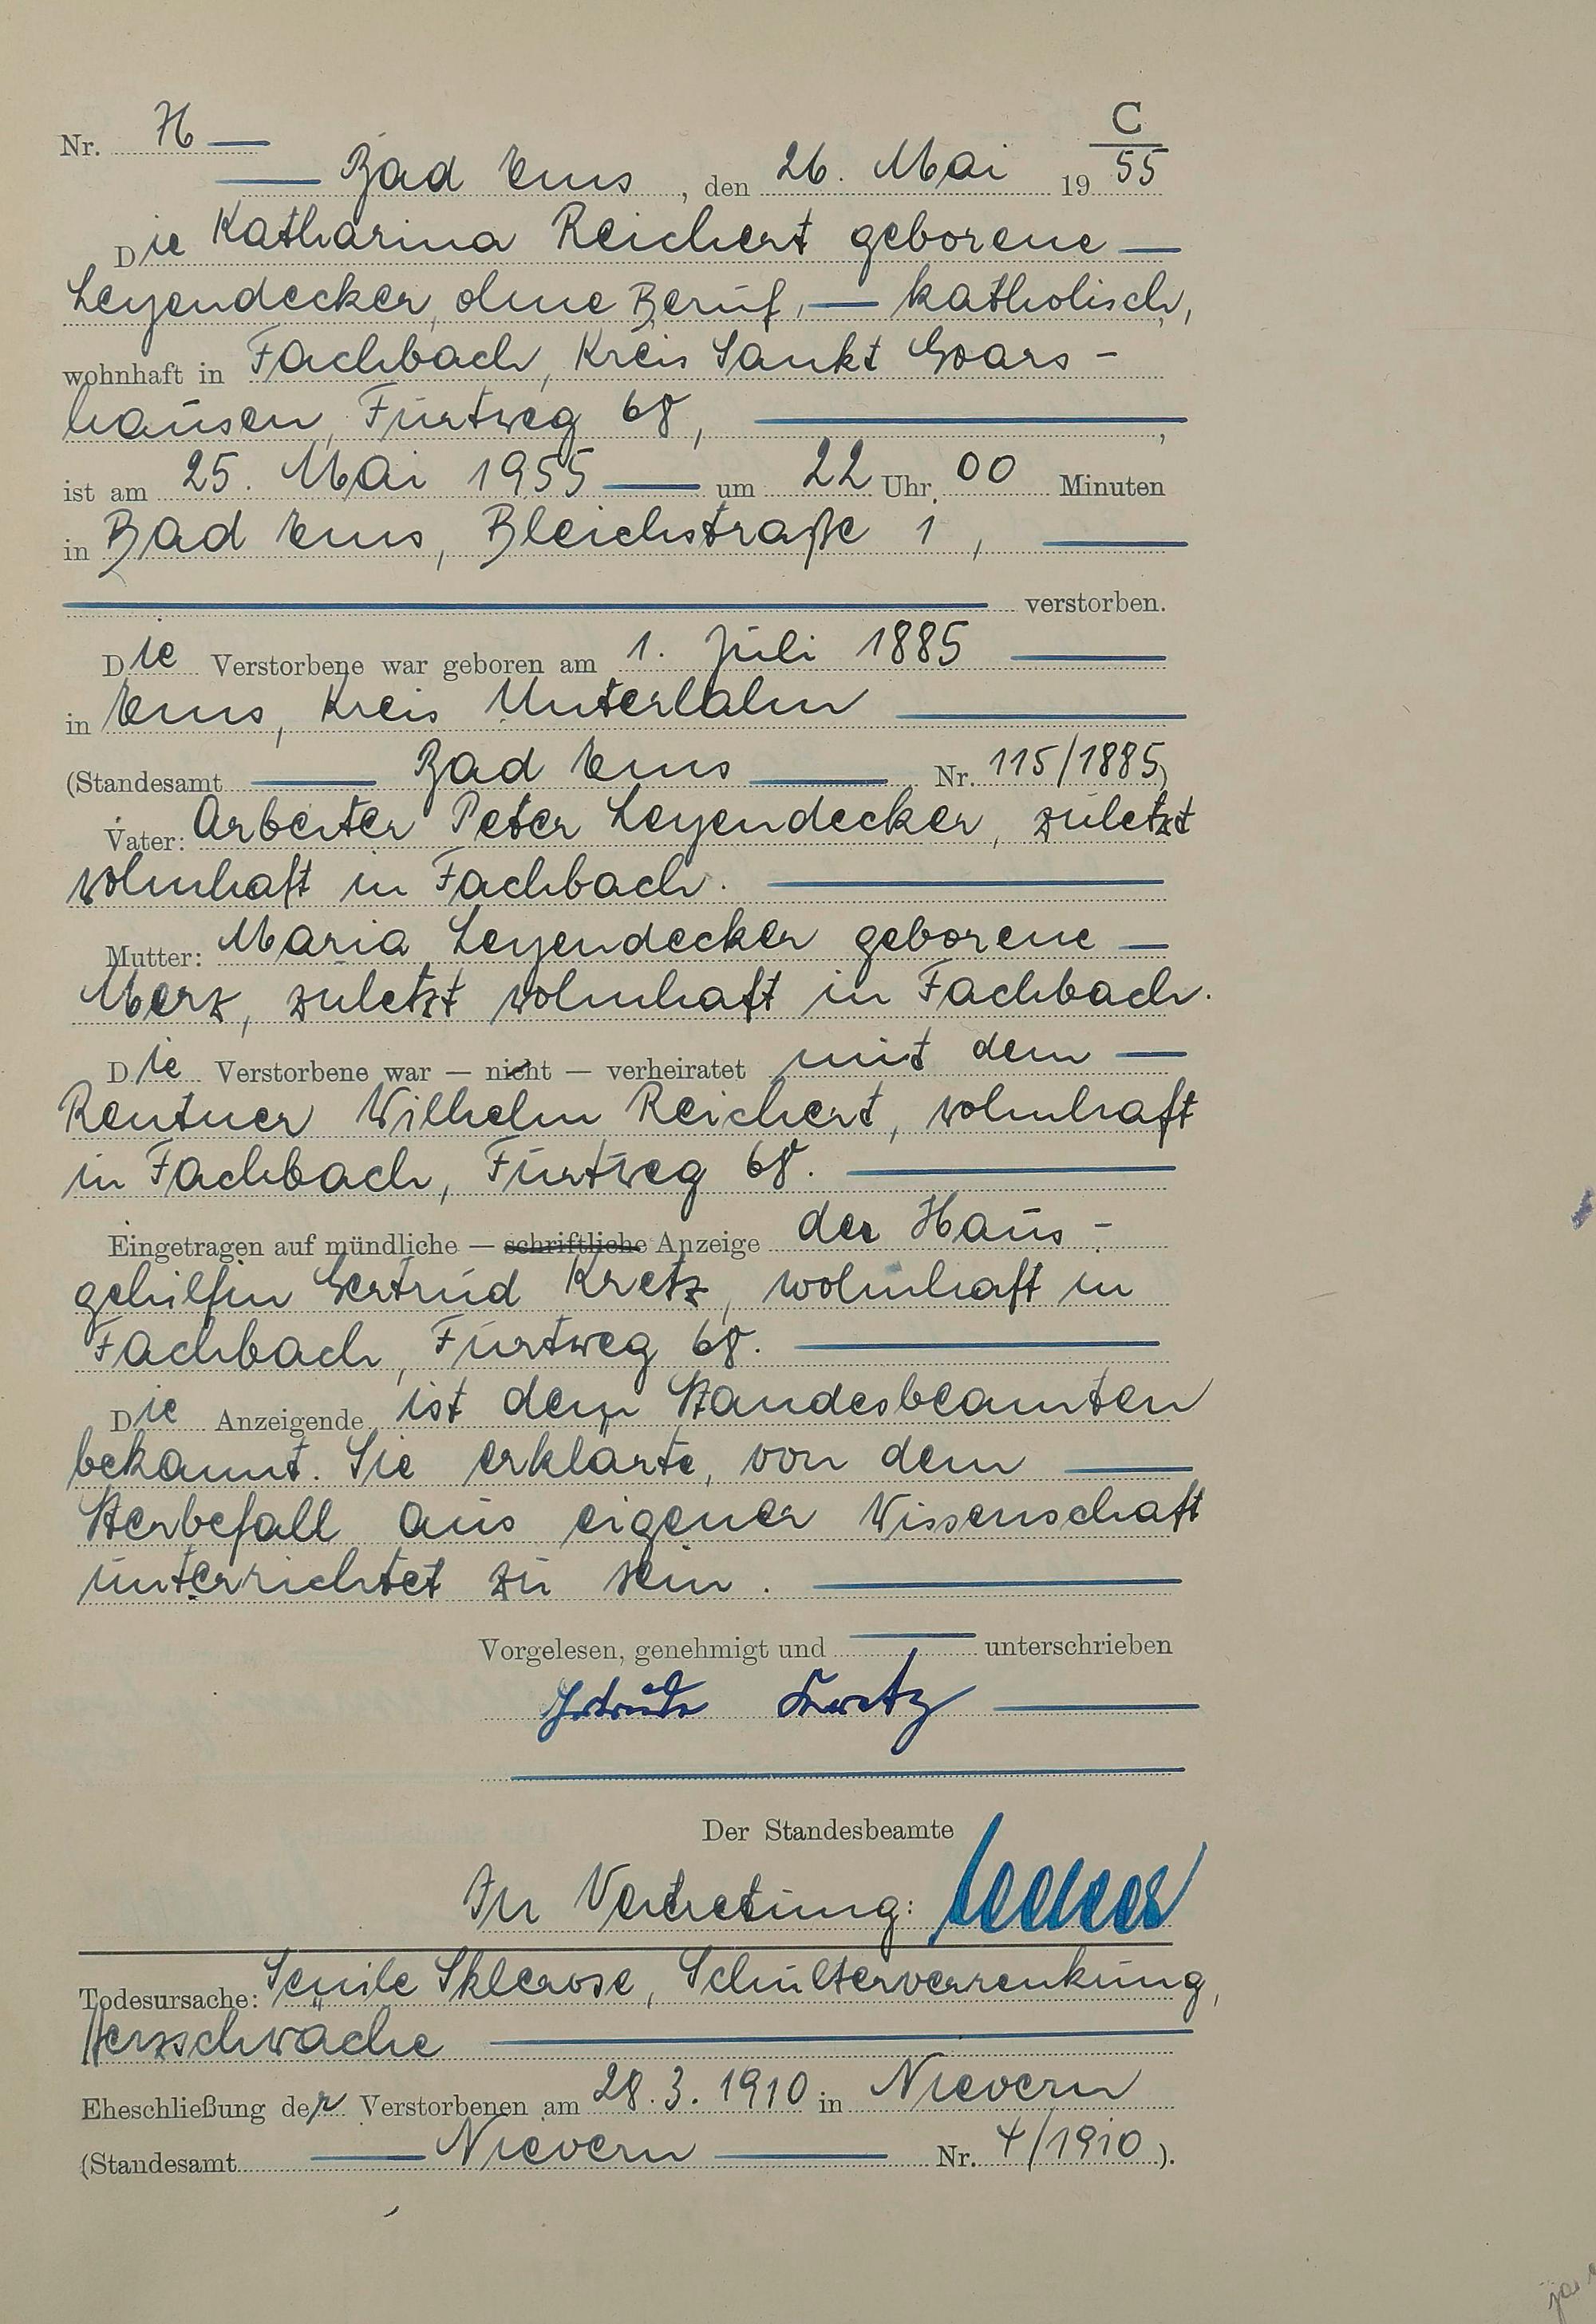 C
Nr. 76
Bad Ems, den 26. Mai 19 55
Die Katharina Reichert geborene
Leyendecker, ohne Beruf, katholisch,
wohnhaft in Fachbach, Kreis Sankt Goars-
hausen, Furtweg 68,
ist am 25. Mai 1955 um 22 Uhr 00 Minuten
in Bad Ems, Bleichstraße 1,
verstorben.
Die Verstorbene war geboren am 1. Juli 1885
in Ems, Kreis Unterlahn
(Standesamt Bad Ems Nr. 115/1885)
Vater: Arbeiter Peter Leyendecker, zuletzt
wohnhaft in Fachbach.
Mutter: Maria Leyendecker geborene
Merz, zuletzt wohnhaft in Fachbach.
Die Verstorbene war — nicht — verheiratet mit dem
Rentner Wilhelm Reichert, wohnhaft
in Fachbach, Furtweg 68.
Eingetragen auf mündliche — schriftliche Anzeige der Haus-
gehilfin Gertrud Kretz, wohnhaft in
Fachbach, Furtweg 68.
Die Anzeigende ist dem Standesbeamten
bekannt. Sie erklärte, von dem
Sterbefall aus eigener Wissenschaft
unterrichtet zu sein.
Vorgelesen, genehmigt und unterschrieben
Kretz
Der Standesbeamte
In Vertretung:
Todesursache: Senile Sklerose, Schulterverrenkung,
Herzschwäche
Eheschließung der Verstorbenen am 28.3.1910 in Nievern
(Standesamt Nievern Nr. 4/1910).